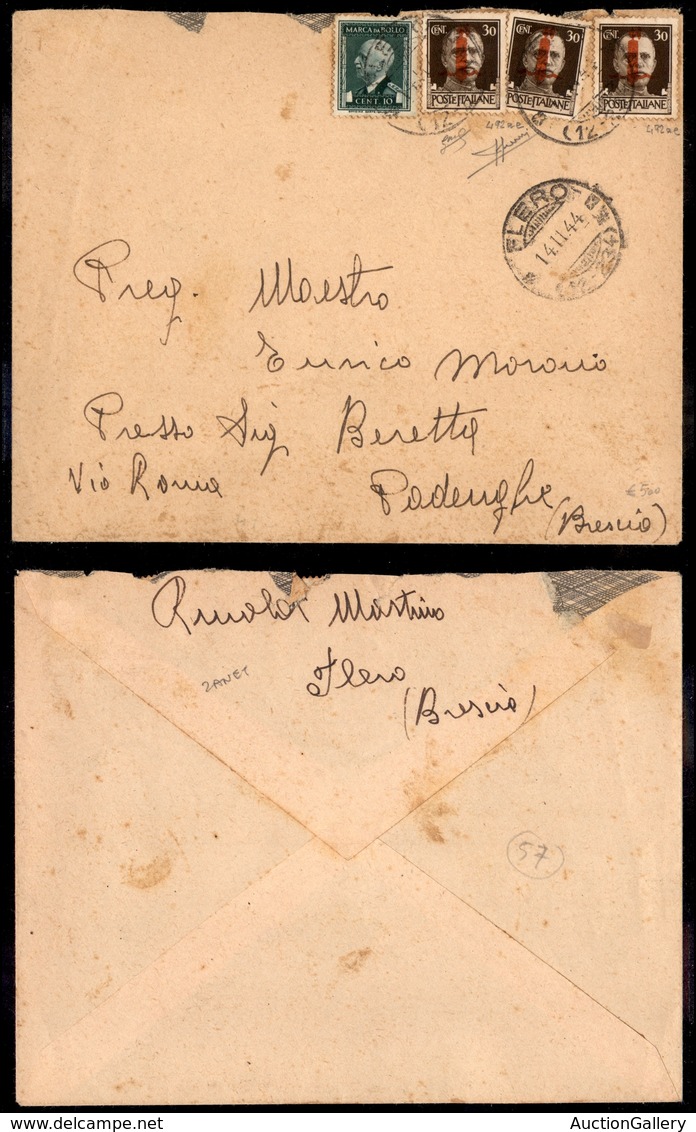 MARCA DA BOLLO
CENT. 10
CENT. 30
POSTE ITALIANE
CENT. 30
POSTE ITALIANE
CENT. 30
POSTE ITALIANE
(12-
(12-
FLERO
14.11.44
Preg. Maestro
Enrico Morano
Presso Sig Beretta
Via Roma
Padenghe
(Brescia)
€500
Martino
Flero
(Brescia)
ZANET
57
AuctionGallery